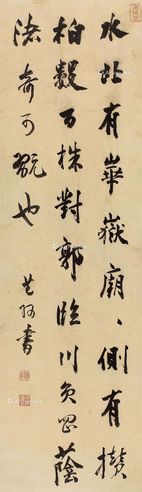 水北有華嶽廟、側有攢
柏數百株對郭臨川負罡蔭
渚奇可翫也
芝阿書